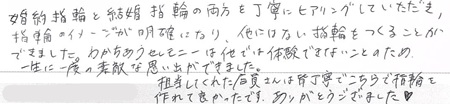 婚約指輪と結婚指輪の両方を丁寧にヒアリングしていただき、
指輪のイメージが明確になり、他にはない指輪をつくることが
できました。わかちあうセレモニーは他では体験できないことのため
一生に一度の素敵な思い出ができました。
担当してくれた店員さんは皆丁寧でこちらで指輪を
作れて良かったです。ありがとうございました♥